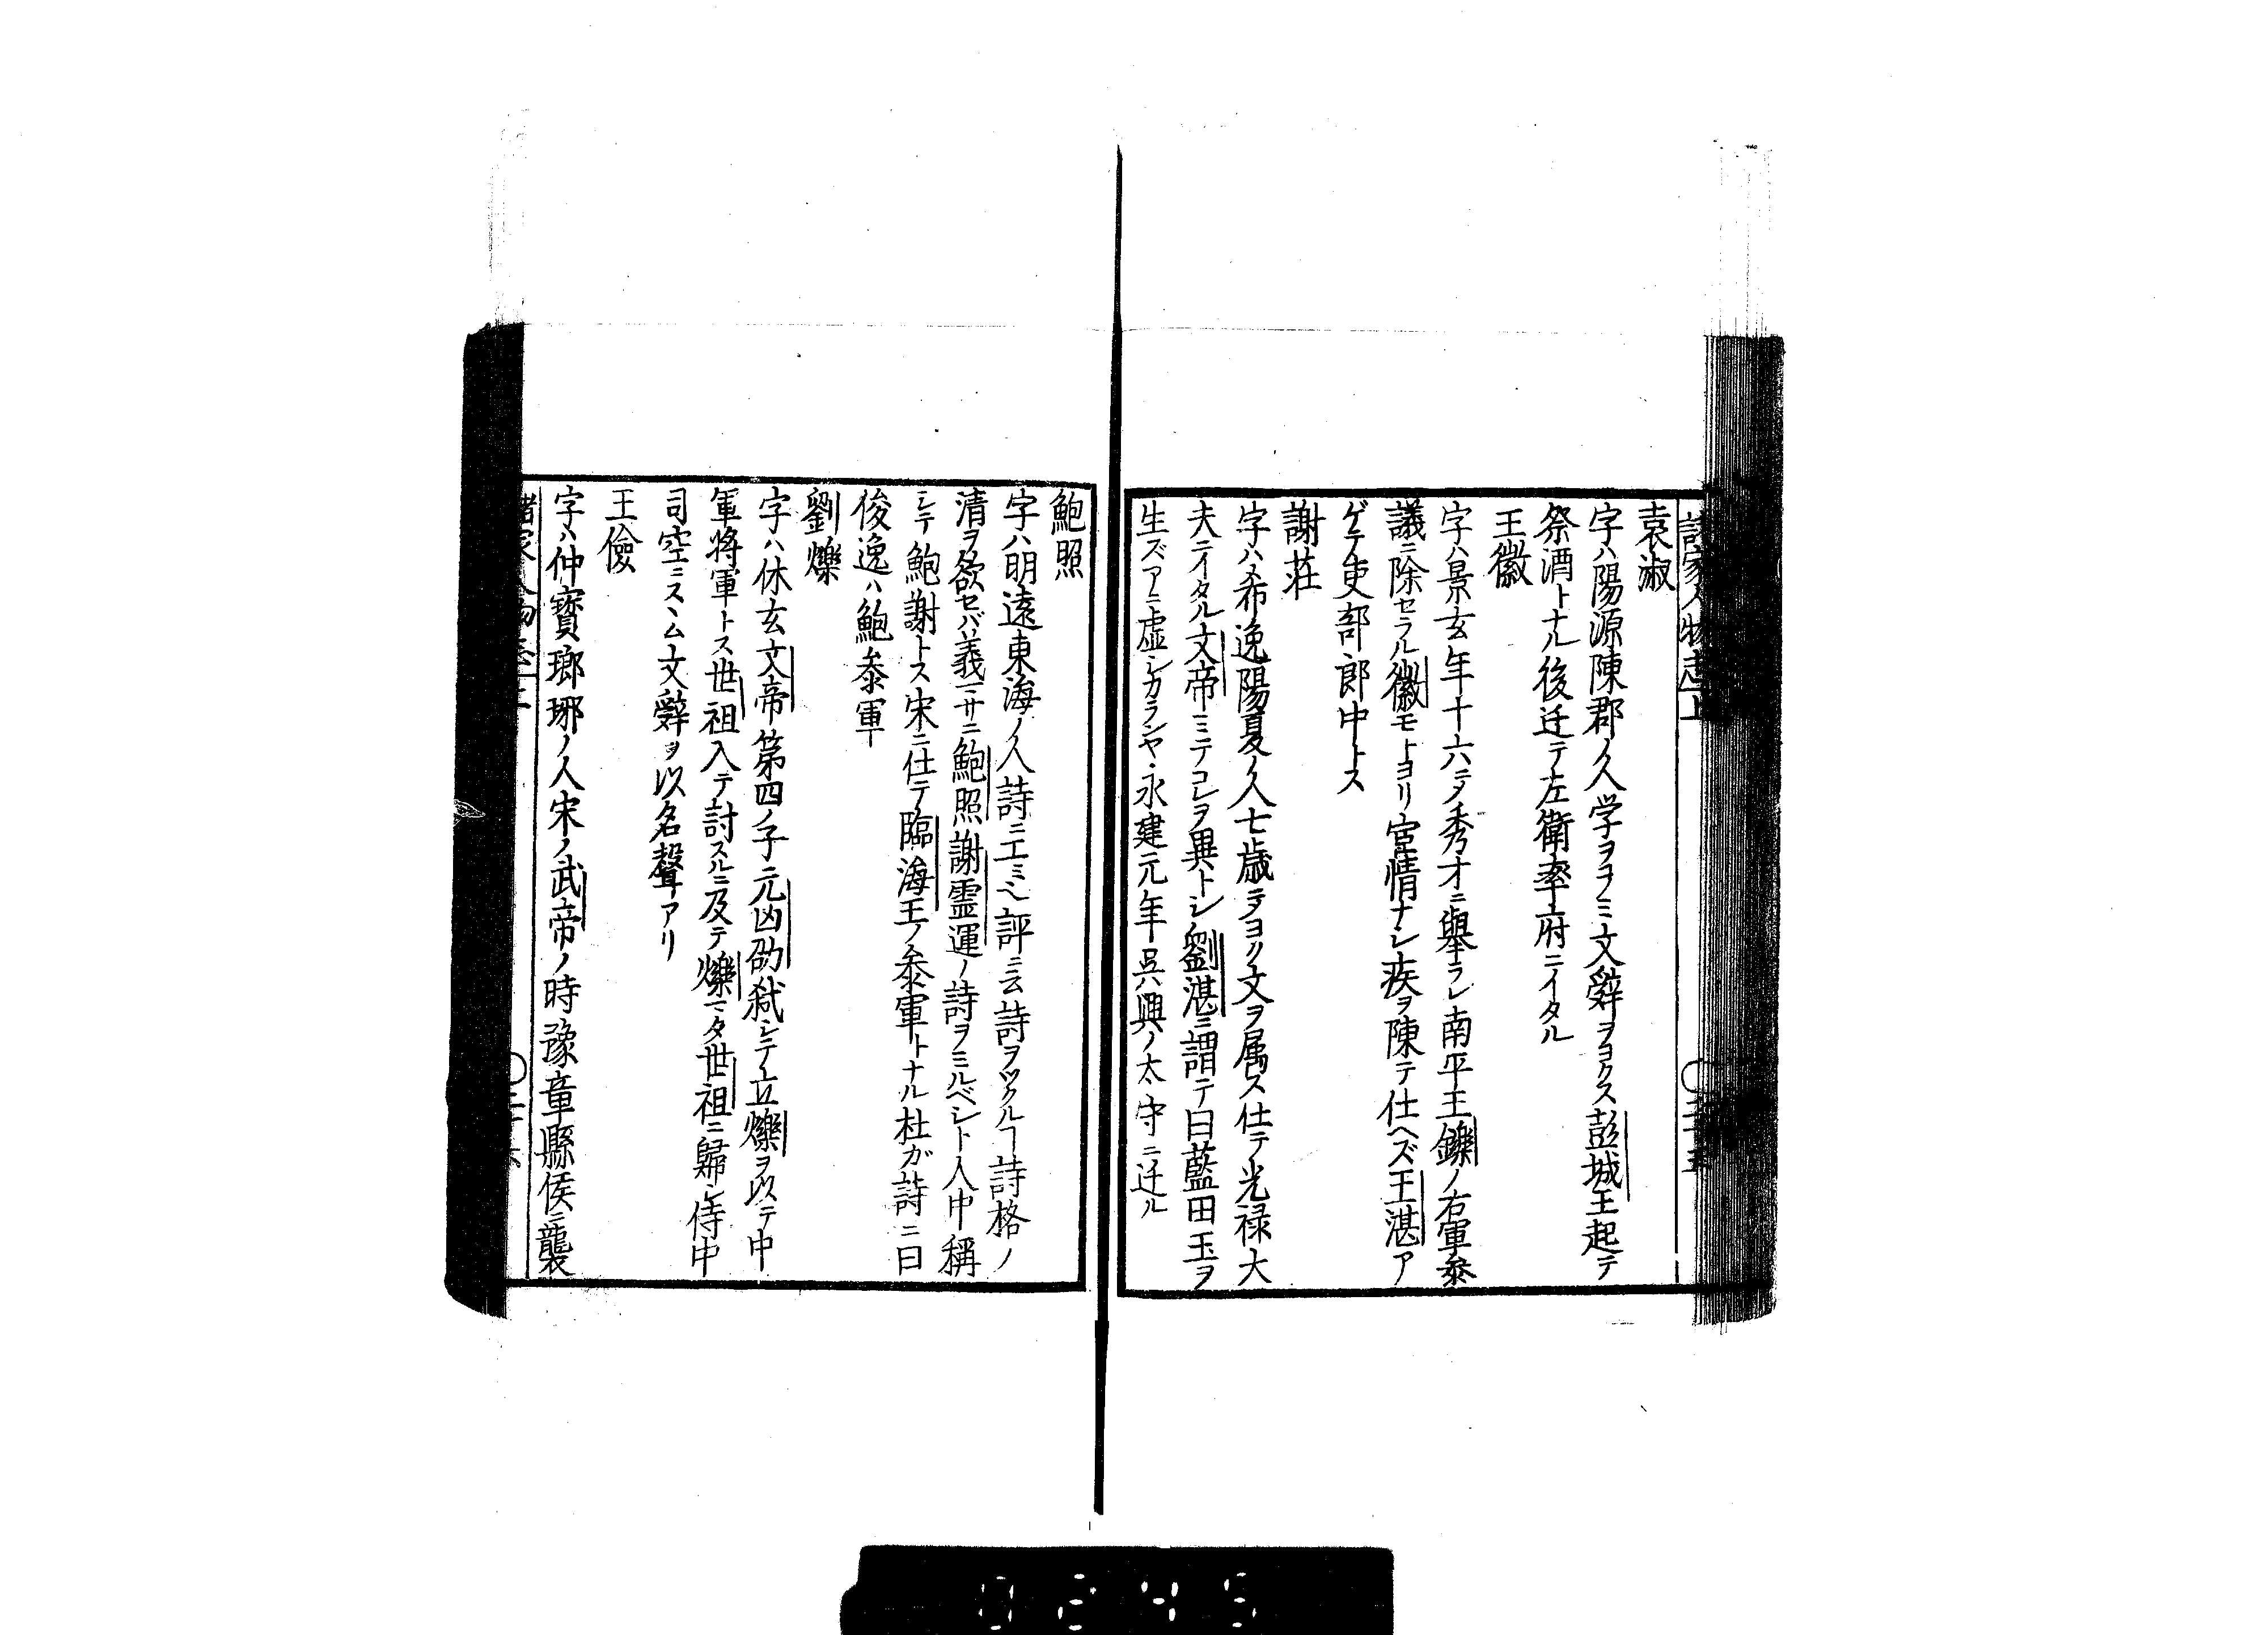 袁淑
字ハ陽源陳郡ノ人学ヲヨノミ文辤ヲヨクス彭城王起テ
祭酒トナル後迁テ左衛率府ニイタル
王徽
字ハ景玄年十六ニノ秀才ニ舉ラレ南平王鑠ノ右軍参
議ニ除セラル徽モトヨリ宦情ナシ疾ヲ陳テ仕ヘズ王湛ア
ゲテ吏部郎中トス
謝荘
字ハ希逸陽夏ノ人七歳ニヨク文ヲ属ス仕テ光禄大
夫ニイタル文帝ミテコレヲ異トシ劉湛ニ謂テ曰藍田玉ヲ
生ズアニ虚シカランヤ永建元年呉興ノ太守ニ迁ル
鮑照
字ハ明遠東海ノ人詩ニ工ミ評ニ云詩ヲツクルヿ詩格ノ
清ヲ欲セバ義マサニ鮑照謝霊運ノ詩ヲミルベシト入中稱
シテ鮑謝トス宋ニ仕テ臨海王ノ参軍トナル杜ガ詩ニ曰
俊逸ハ鮑参軍
劉爍
字ハ休玄文帝第四ノ子元凶劭弑シテ立爍ヲ以テ中
軍将軍トス世祖入テ討スルニ及テ爍マタ世祖ニ歸シ侍中
司空ニスヽム文辤ヲ以名聲アリ
王儉
字ハ仲寳瑯琊ノ人宋ノ武帝ノ時豫章縣侯ニ襲
0243